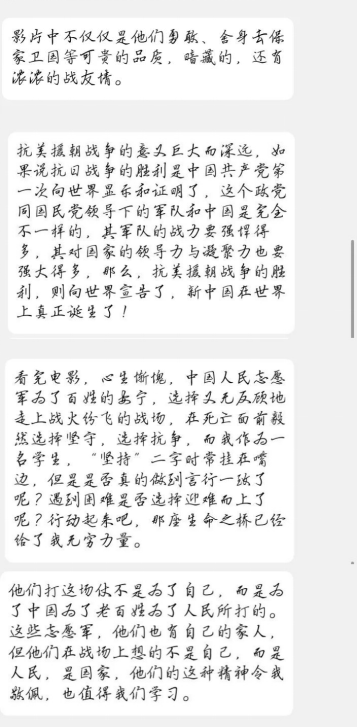 影片中不仅仅是他们勇敢、舍身去保
家卫国等可贵的品质，暗藏的，还有
浓浓的战友情。
抗美援朝战争的意义巨大而深远，如
果说抗日战争的胜利是中国共产党第
一次向世界显示和证明了，这个政党
同国民党领导下的军队和中国是完全
不一样的，其军队的战力要强悍得
多，其对国家的领导力与凝聚力也要
强大得多，那么，抗美援朝战争的胜
利，则向世界宣告了，新中国在世界
上真正诞生了！
看完电影，心生惭愧，中国人民志愿
军为了百姓的安宁，选择义无反顾地
走上战火纷飞的战场，在死亡面前毅
然选择坚守，选择抗争，而我作为一
名学生，“坚持”二字时常挂在嘴
边，但是是否真的做到言行一致了
呢？遇到困难是否选择迎难而上了
呢？行动起来吧，那座生命之桥已经
给了我无穷力量。
他们打这场仗不是为了自己，而是为
了中国为了老百姓为了人民所打的。
这些志愿军，他们也有自己的家人，
但他们在战场上想的不是自己，而是
人民，是国家，他们的这种精神令我
敬佩，也值得我们学习。